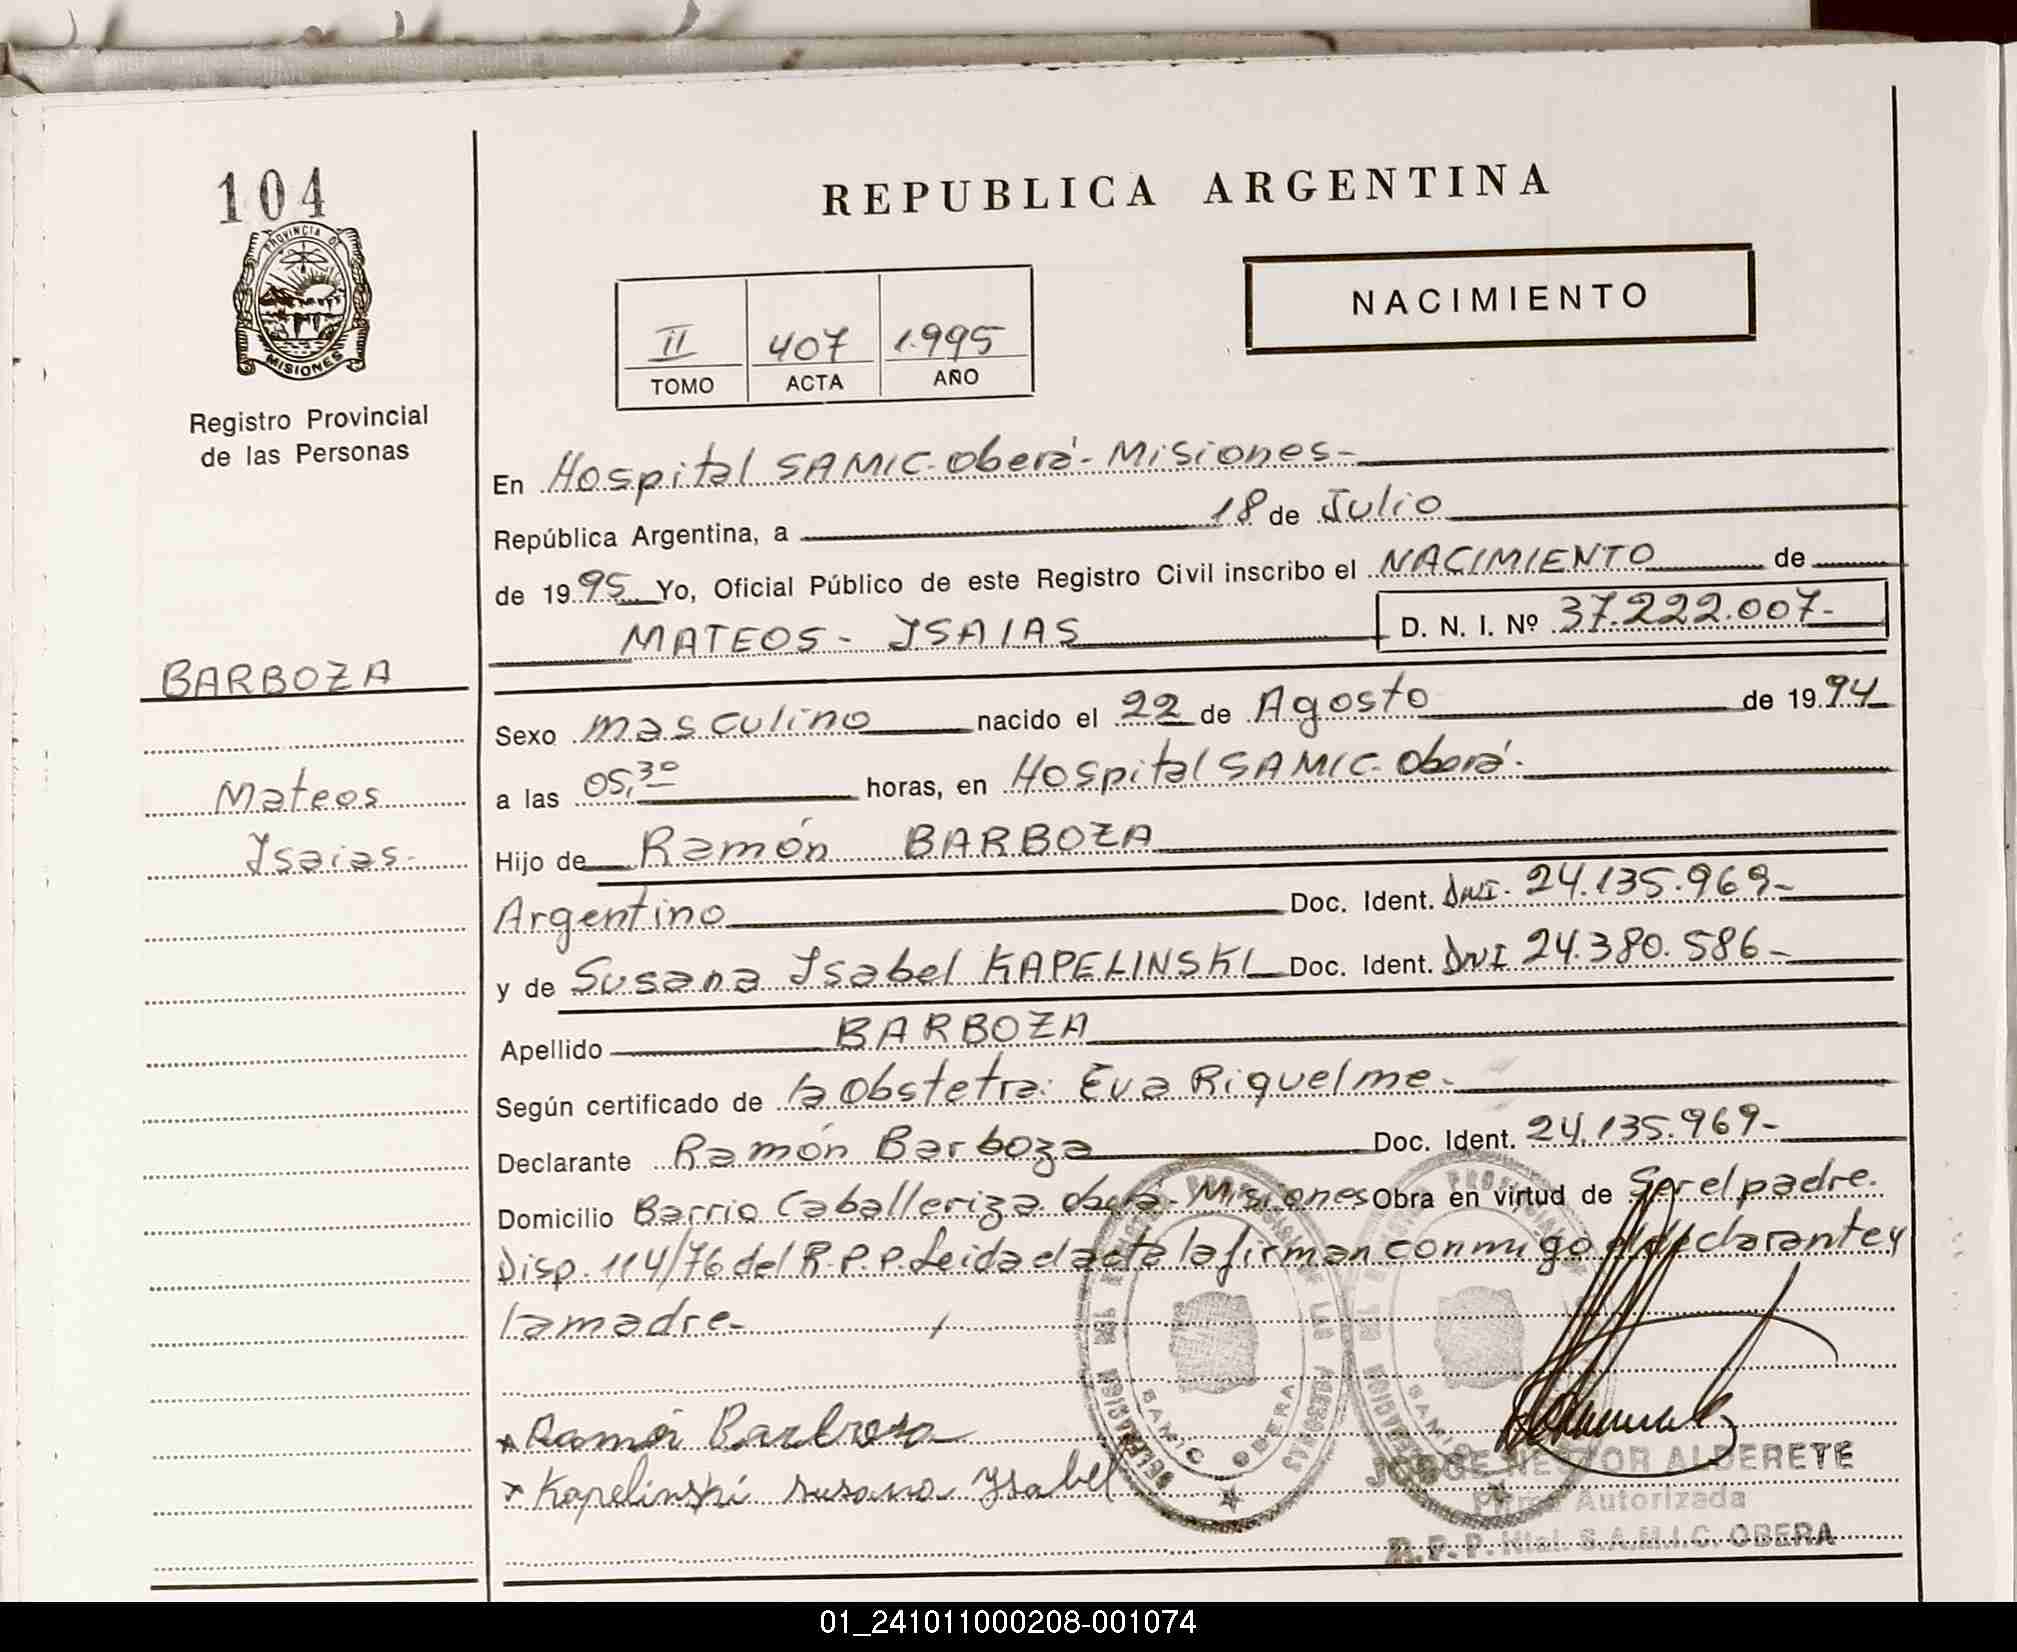 104
PROVINCIA DE
MISIONES
Registro Provincial
de las Personas
BARBOZA
Mateos
Isaias.-
REPUBLICA ARGENTINA
NACIMIENTO
II 407 1.995
TOMO ACTA AÑO
En Hospital SAMIC - Oberá - Misiones -
República Argentina, a 18 de Julio
de 1995 Yo, Oficial Público de este Registro Civil inscribo el NACIMIENTO de
MATEOS - ISAIAS D. N. I. Nº 37.222.007-
Sexo masculino nacido el 22 de Agosto de 1994
a las 05,30 horas, en Hospital SAMIC - Oberá.
Hijo de Ramón BARBOZA
Argentino Doc. Ident. DNI. 24.135.969-
y de Susana Isabel KAPELINSKI Doc. Ident. DNI 24.380.586-
Apellido BARBOZA
Según certificado de la Obstetra: Eva Riquelme -
Declarante Ramón Barboza Doc. Ident. 24.135.969-
Domicilio Barrio Caballeriza. Oberá - Misiones Obra en virtud de Ser el padre.
Disp. 114/76 del R.P.P. Leida el acta la firman conmigo el declarante y
la madre -
Ramón Barboza
Kapelinski susana Ysabel
SAMIC OBERA
JORGE NESTOR ALDERETE
Firma Autorizada
R.P.P. Htal. S.A.M.I.C. OBERA
01_241011000208-001074